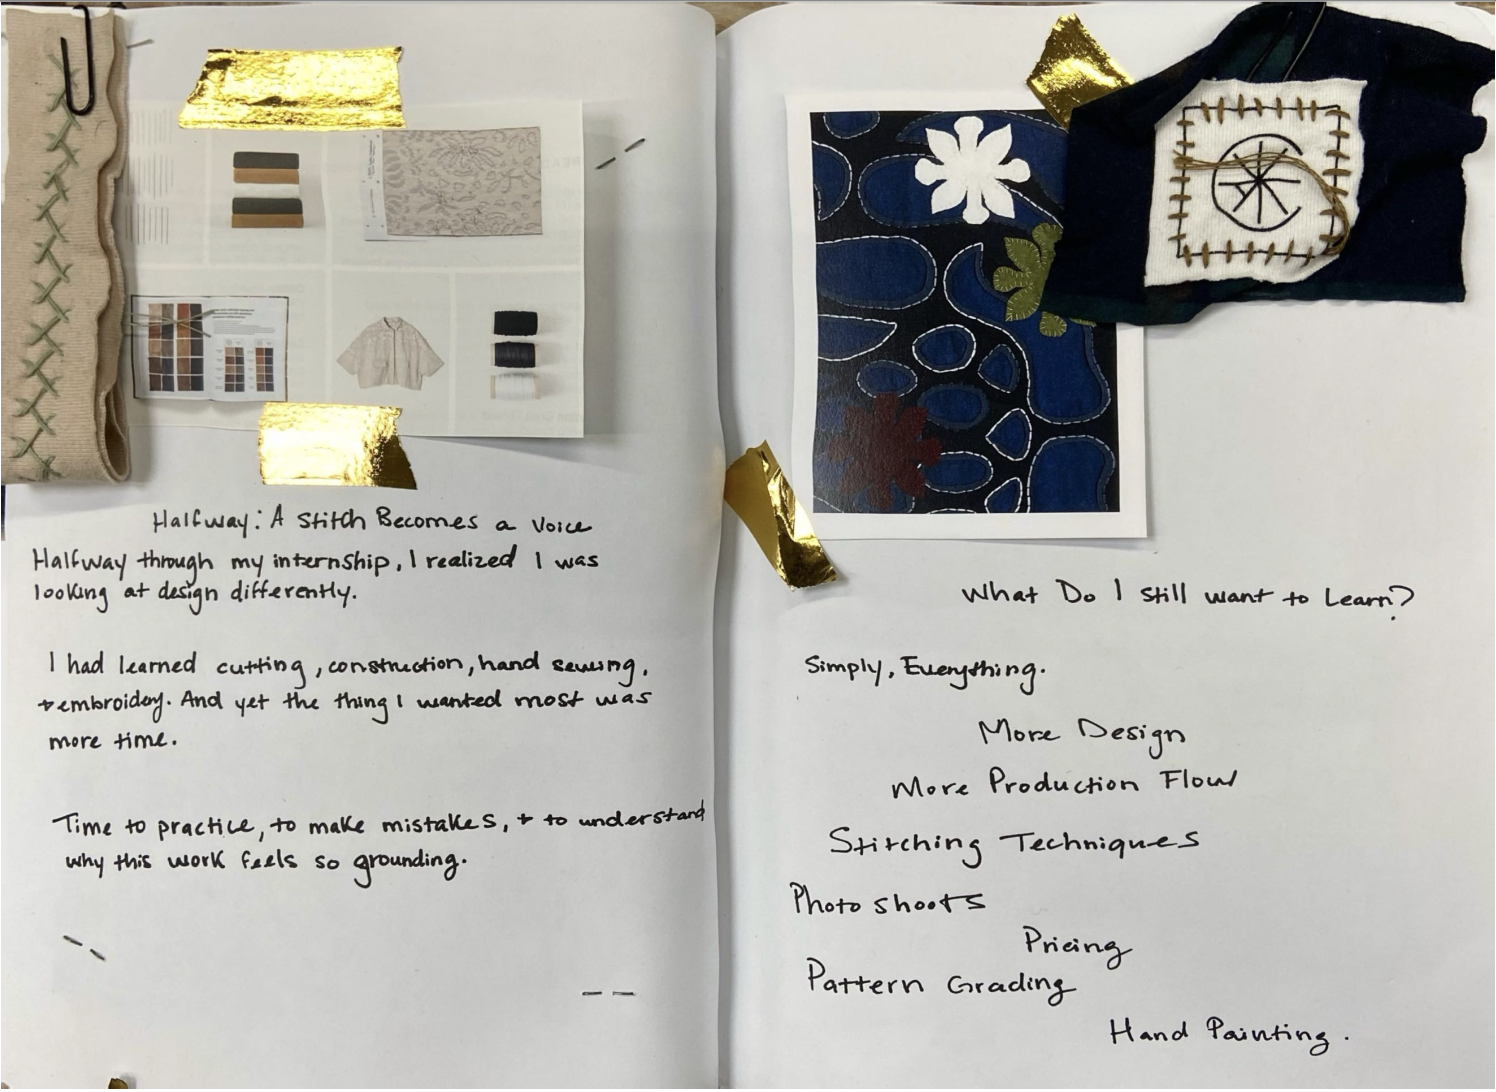 Halfway: A Stitch Becomes a Voice
Halfway through my internship, I realized I was
looking at design differently.
I had learned cutting, construction, hand sewing,
+ embroidery. And yet the thing I wanted most was
more time.
Time to practice, to make mistakes, + to understand
why this work feels so grounding.
What Do I Still want to Learn?
Simply, Everything.
More Design
More Production Flow
Stitching Techniques
Photo shoots
Pricing
Pattern Grading
Hand Painting.